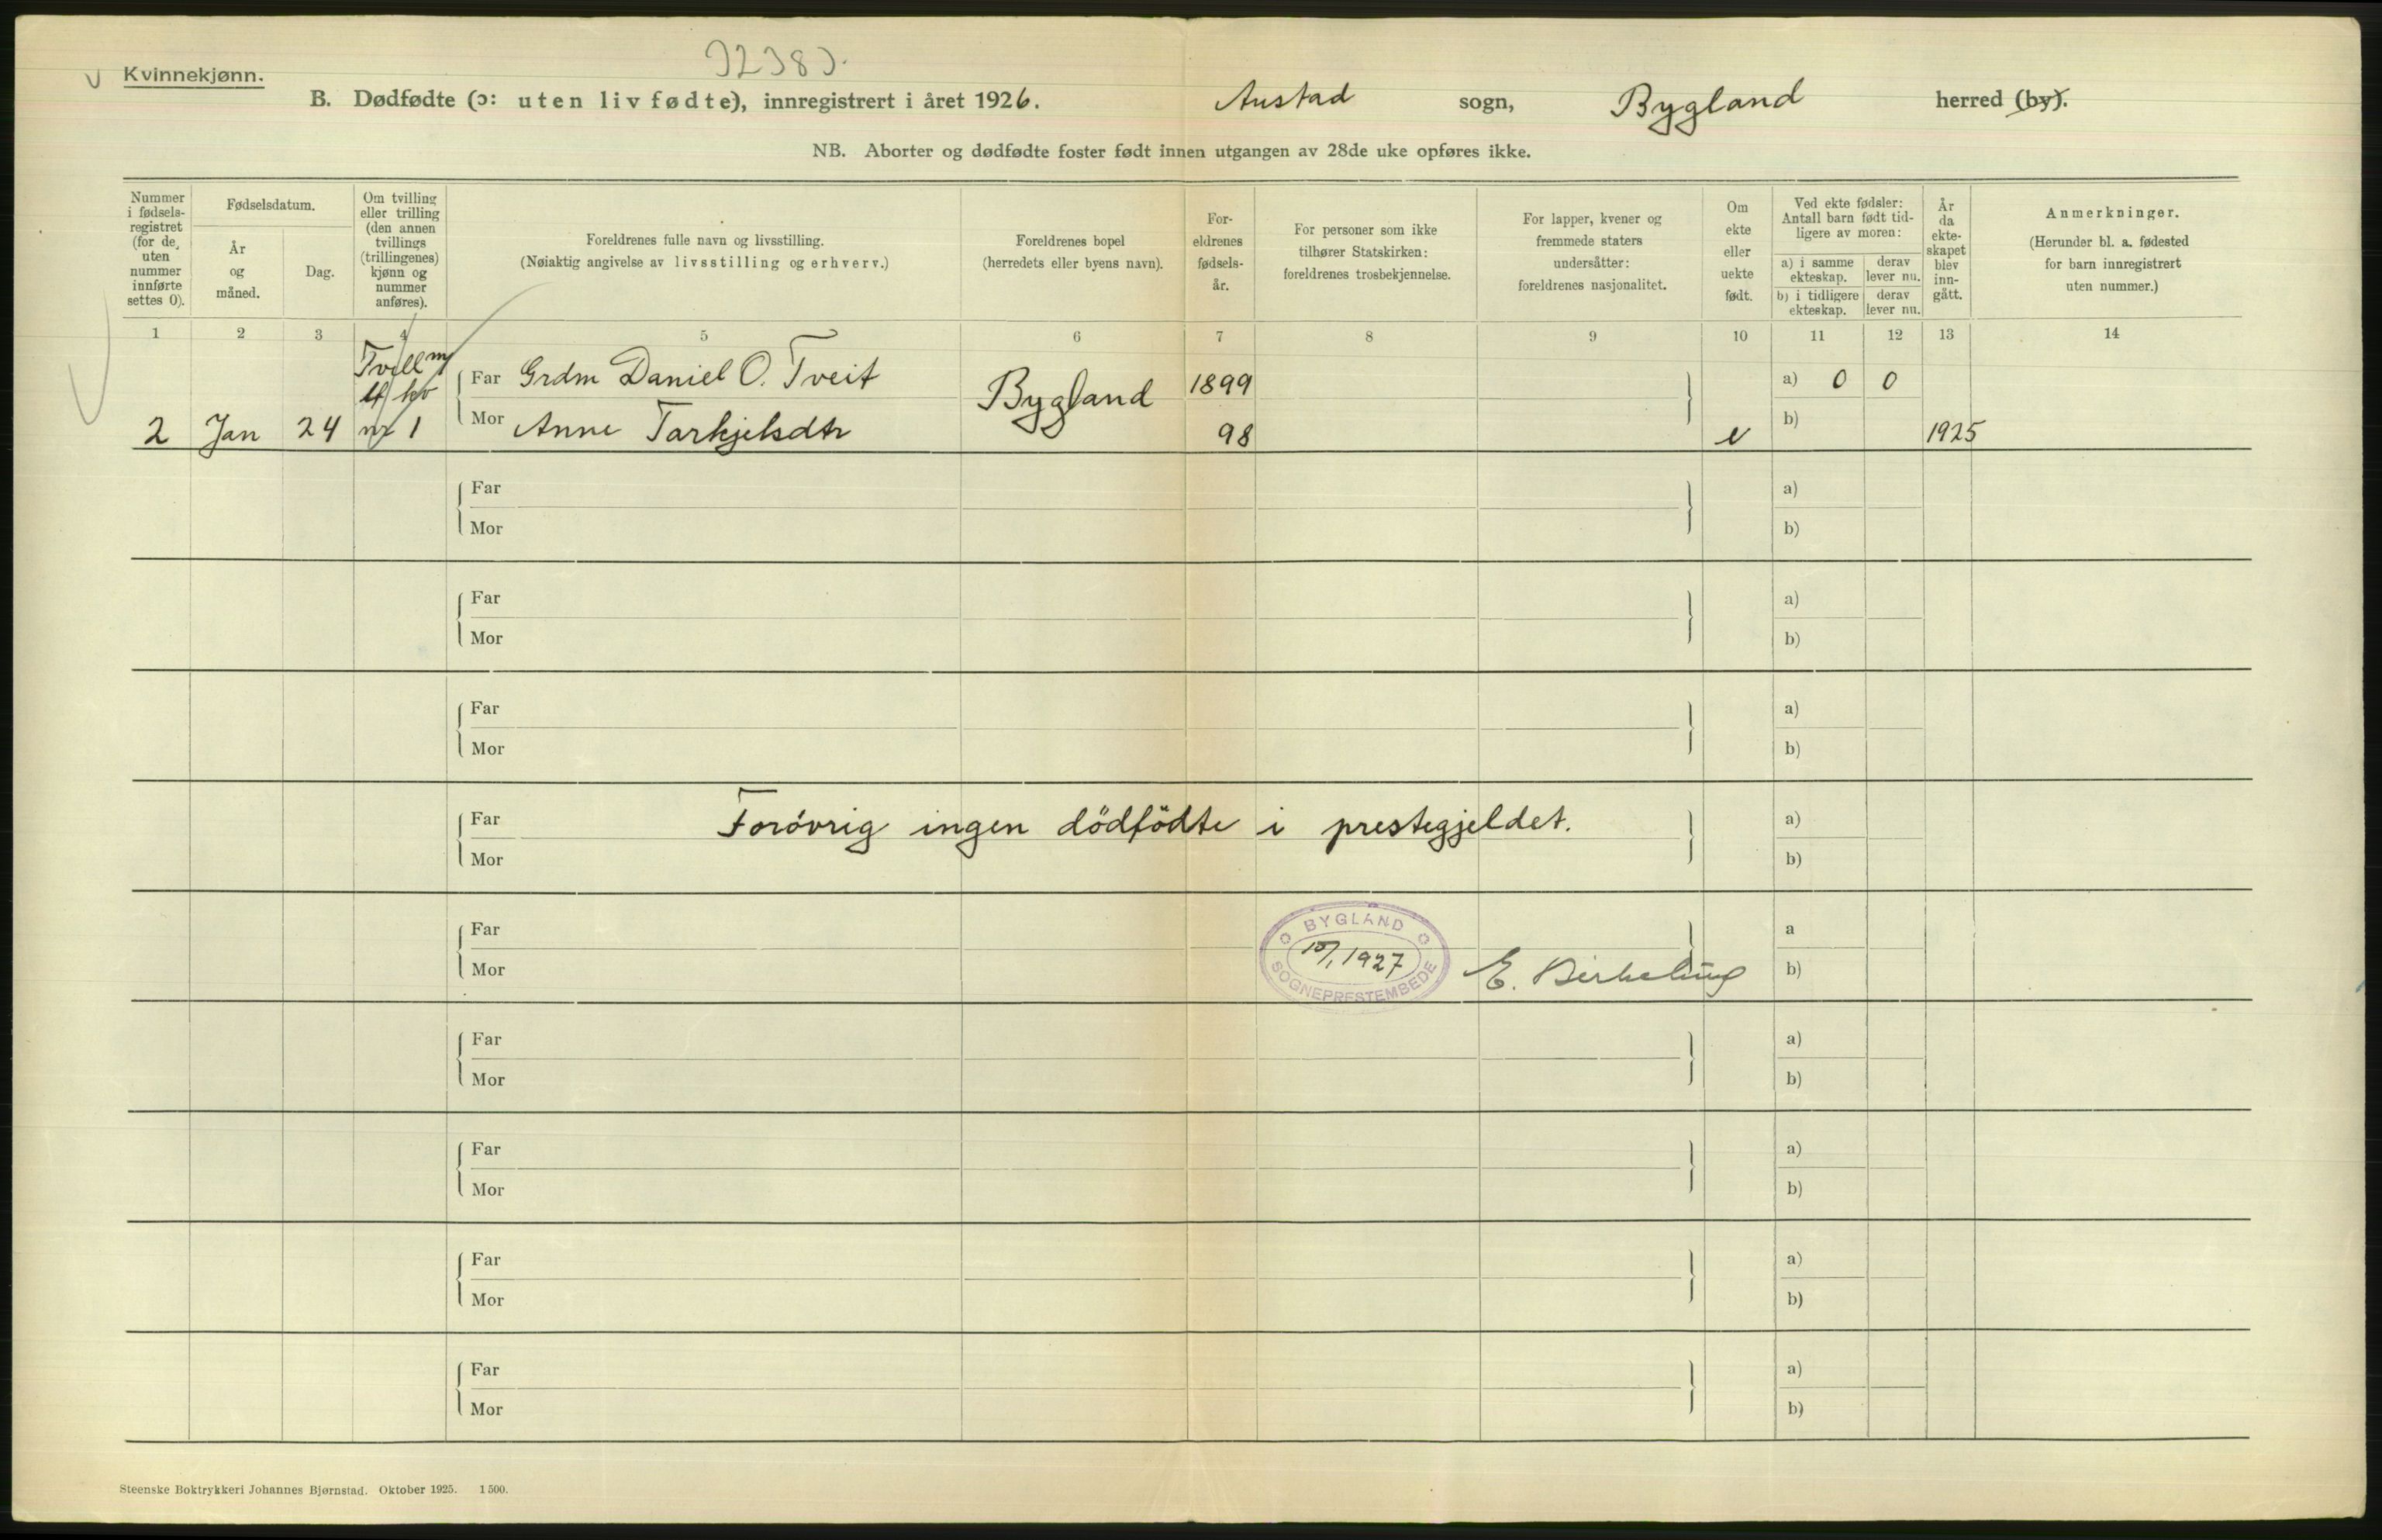 Kvinnekjønn.
B. Dødfødte (ɔ: uten liv fødte), innregistrert i året 1926. Austad sogn, Bygland herred (by).
NB. Aborter og dødfødte foster født innen utgangen av 28de uke opføres ikke.
Nummer i fødsels-registret (for de uten nummer innførte settes 0).
Fødselsdatum.
År og måned.
Dag.
Om tvilling eller trilling (den annen tvillings (trillingenes) kjønn og nummer anføres).
Foreldrenes fulle navn og livsstilling.
(Nøiaktig angivelse av livsstilling og erhverv.)
Foreldrenes bopel (herredets eller byens navn).
For-eldrenes fødsels-år.
For personer som ikke tilhører Statskirken: foreldrenes trosbekjennelse.
For lapper, kvener og fremmede staters undersåtter: foreldrenes nasjonalitet.
Om ekte eller uekte født.
Ved ekte fødsler: Antall barn født tid-ligere av moren:
a) i samme ekteskap.
derav lever nu.
b) i tidligere ekteskap.
derav lever nu.
År da ekte-skapet blev inn-gått.
Anmerkninger.
(Herunder bl. a. fødested for barn innregistrert uten nummer.)
1 2 3 4 5 6 7 8 9 10 11 12 13 14
Tvill m
Far Grdm Daniel O. Tveit Bygland 1899 a) 0 0
2 Jan 24 nr 1 Mor Anne Tarkjelsdtr 98 e b) 1925
Far a)
Mor b)
Far a)
Mor b)
Far a)
Mor b)
Far Forövrig ingen dödfödte i prestegjeldet. a)
Mor b)
Far a
Mor b)
BYGLAND
10/1 1927
SOGNEPRESTEMBEDE
E. Birkeland
Far a)
Mor b)
Far a)
Mor b)
Far a)
Mor b)
Far a)
Mor b)
Steenske Boktrykkeri Johannes Bjørnstad. Oktober 1925. 1500.